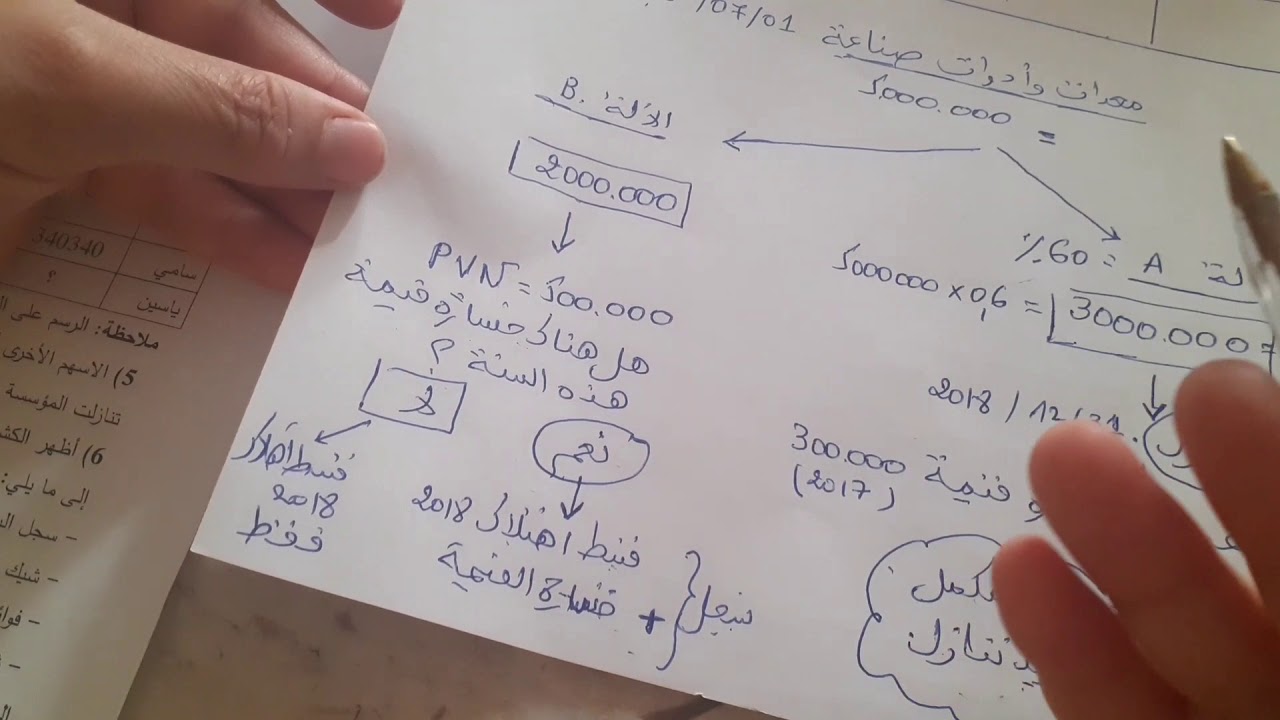 /07/01 معدات وأدوات صناعة
5.000.000 =
الآلة B.
2000.000
PVN = 500.000
هل هناك خسارة قيمة
هذه السنة ؟
لا
نعم
قسط
2018
فقط
قسط اهتلاك 2018
+ خسارة القيمة
نسجل
A = 60٪
5000000 x 0,6 = 3000.000 =
2018 / 12 / 31
قيمة 300.000
(2017)
تنازل
340340 سامي
؟ ياسين
ملاحظة: الرسم على
5) الاسهم الأخرى
تنازلت المؤسسة
6) أظهر
إلى ما يلي:
- سجل
- شيك